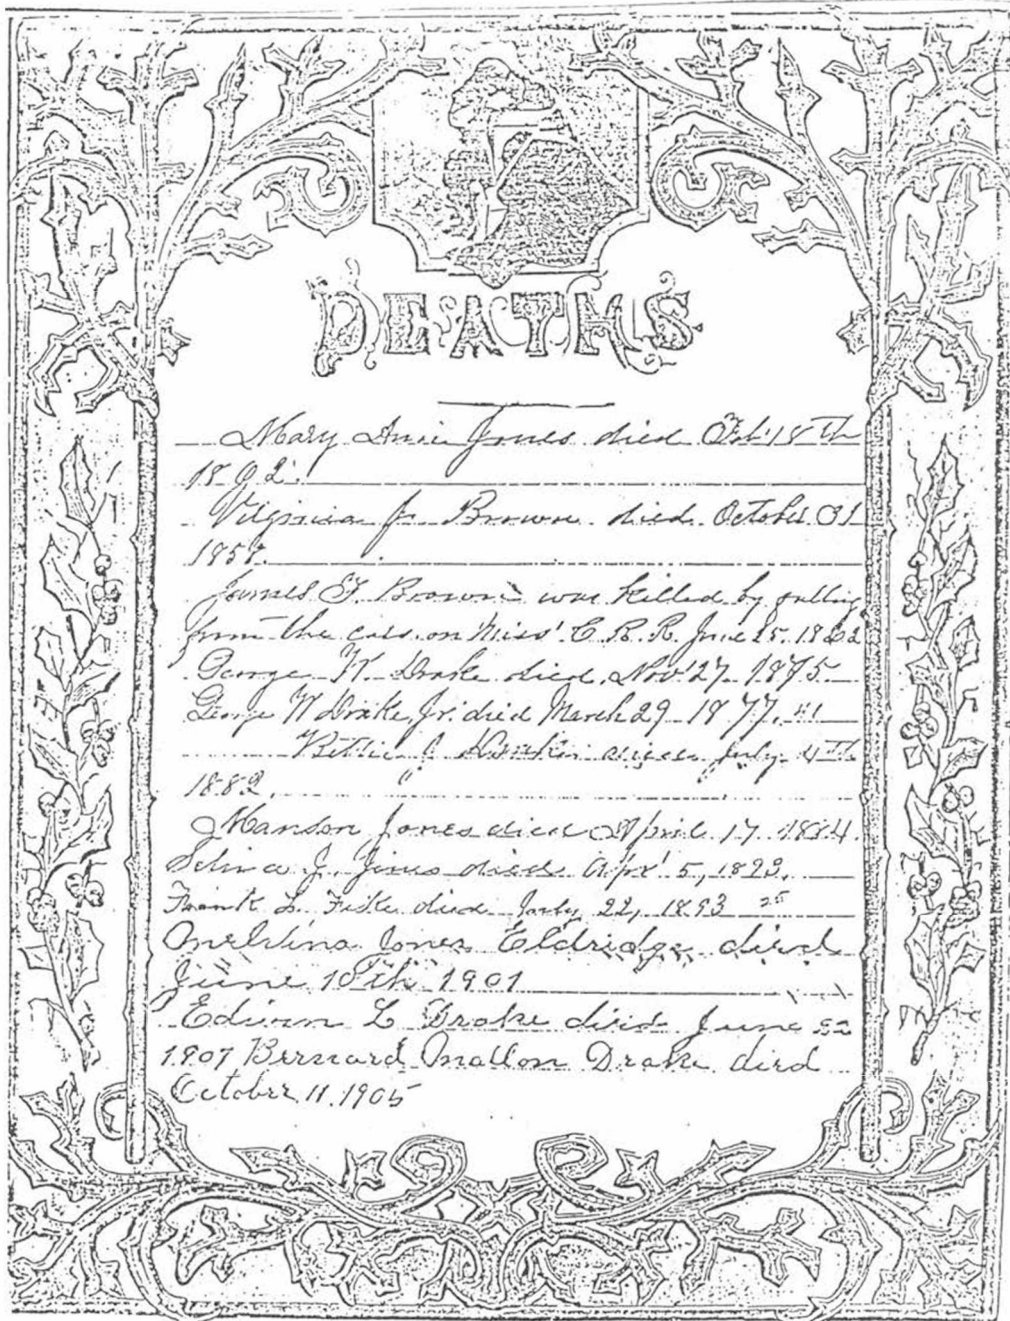 DEATHS
Mary Annie Jones died Feb 18th
1892.
Virginia J. Brown died October 31
1858.
James F. Brown was killed by falling
from the cars on Miss' C. R. R. June 25. 1862
George W. Drake died Nov 27 1875
George W Drake, Jr. died March 29 1877.
Bettie J died July 4th
1882.
Manson Jones died April 17. 1884.
J. Jones died Apr' 5, 1893.
Frank L. Fiske died July 22, 1893
Jones Eldridge died
June 18th 1901
Edwin L Drake died June 22
1907 Bernard Mallon Drake died
October 11. 1905